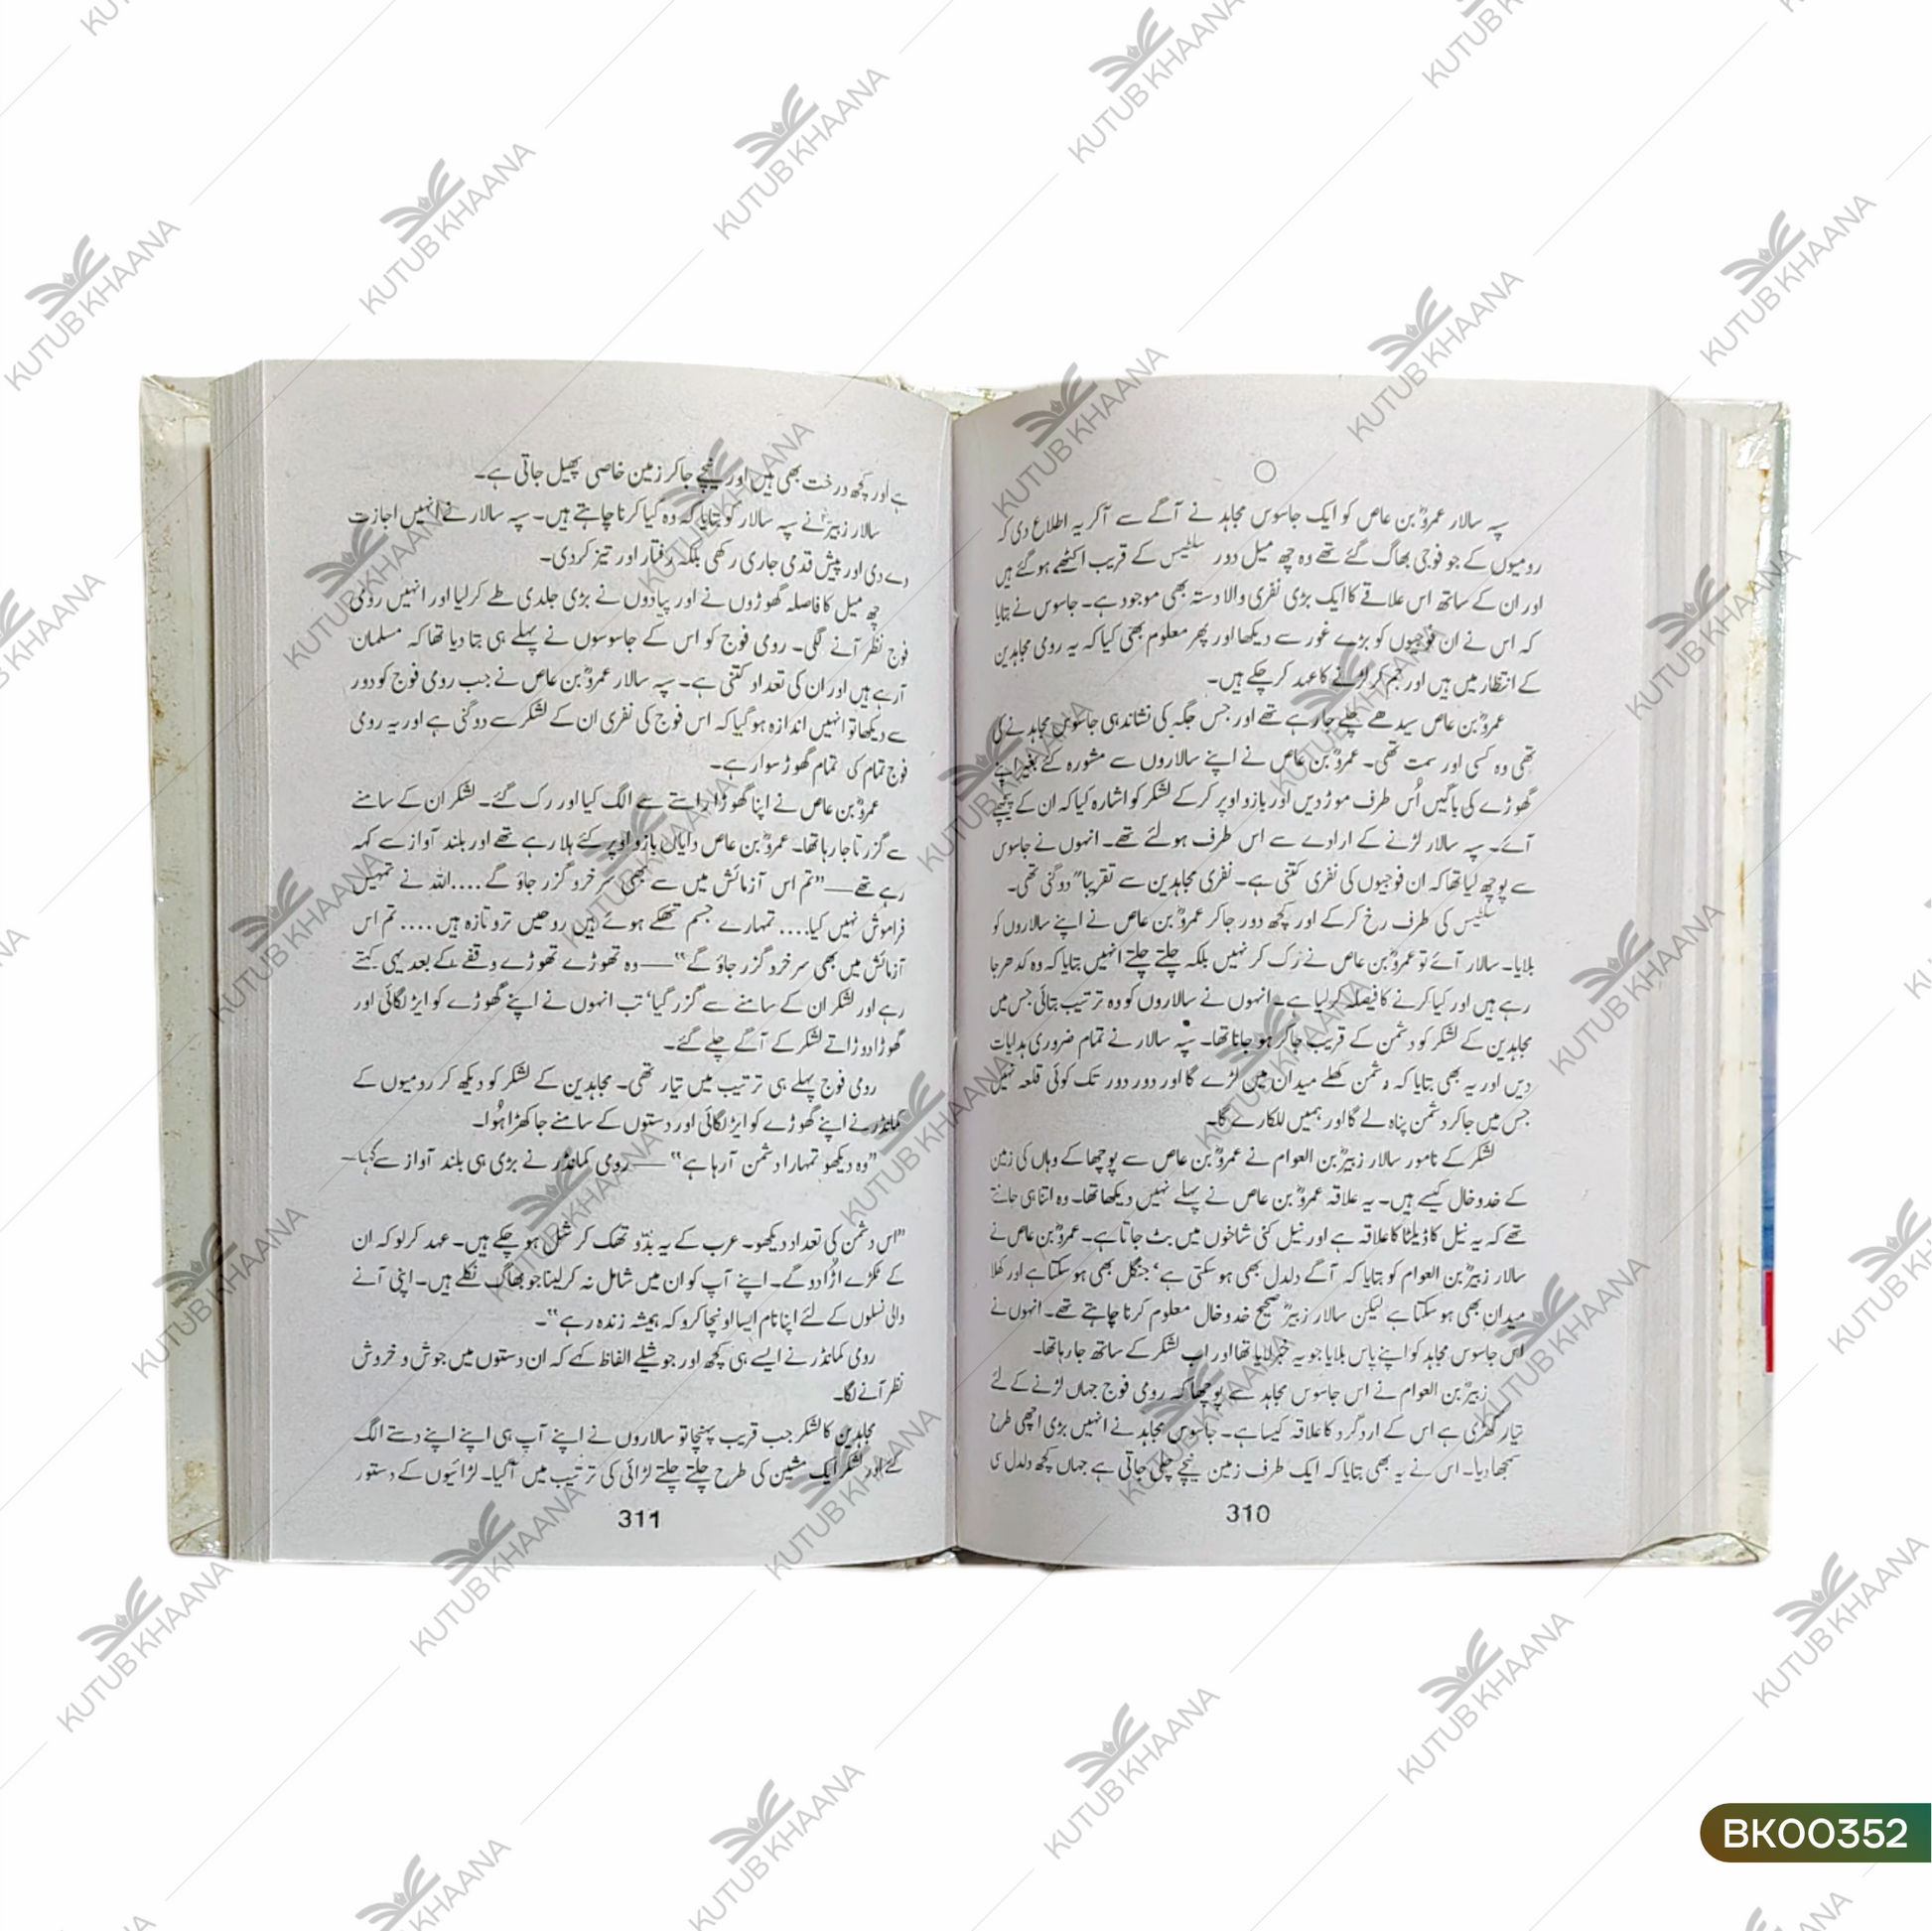 ○
سپہ سالار عمروؓ بن عاص کو ایک جاسوس مجاہد نے آگے سے آ کر یہ اطلاع دی کہ
رومیوں کے جو فوجی بھاگ گئے تھے وہ چھ میل دور سلطیس کے قریب اکٹھے ہو گئے ہیں
اور ان کے ساتھ اس علاقے کا ایک بڑی نفری والا دستہ بھی موجود ہے۔ جاسوس نے بتایا
کہ اس نے ان فوجیوں کو بڑے غور سے دیکھا اور پھر معلوم بھی کیا کہ یہ رومی مجاہدین
کے انتظار میں ہیں اور جم کر لڑنے کا عہد کر چکے ہیں۔
عمروؓ بن عاص سیدھے چلے جا رہے تھے اور جس جگہ کی نشاندہی جاسوس مجاہد نے کی
تھی وہ کسی اور سمت تھی۔ عمروؓ بن عاص نے اپنے سالاروں سے مشورہ کئے بغیر اپنے
گھوڑے کی باگیں اُس طرف موڑ دیں اور بازو اوپر کر کے لشکر کو اشارہ کیا کہ ان کے پیچھے
آئے۔ سپہ سالار لڑنے کے ارادے سے اس طرف ہو لئے تھے۔ انہوں نے جاسوس
سے پوچھ لیا تھا کہ ان فوجیوں کی نفری کتنی ہے۔ نفری مجاہدین سے تقریباً دوگنی تھی۔
سلطیس کی طرف رخ کر کے اور کچھ دور جا کر عمروؓ بن عاص نے اپنے سالاروں کو
بلایا۔ سالار آئے تو عمروؓ بن عاص نے رُک کر نہیں بلکہ چلتے چلتے انہیں بتایا کہ وہ کدھر جا
رہے ہیں اور کیا کرنے کا فیصلہ کر لیا ہے۔ انہوں نے سالاروں کو وہ ترتیب بتائی جس میں
مجاہدین کے لشکر کو دشمن کے قریب جا کر ہو جانا تھا۔ سپہ سالار نے تمام ضروری ہدایات
دیں اور یہ بھی بتایا کہ دشمن کھلے میدان میں لڑے گا اور دور دور تک کوئی قلعہ نہیں
جس میں جا کر دشمن پناہ لے گا اور ہمیں للکارے گا۔
لشکر کے نامور سالار زبیرؓ بن العوام نے عمروؓ بن عاص سے پوچھا کے وہاں کی زمین
کے خدوخال کیسے ہیں۔ یہ علاقہ عمروؓ بن عاص نے پہلے نہیں دیکھا تھا۔ وہ اتنا ہی جانتے
تھے کہ یہ نیل کا ڈیلٹا کا علاقہ ہے اور نیل کئی شاخوں میں بٹ جاتا ہے۔ عمروؓ بن عاص نے
سالار زبیرؓ بن العوام کو بتایا کہ آگے دلدل بھی ہو سکتی ہے‘ جنگل بھی ہو سکتا ہے اور کھلا
میدان بھی ہو سکتا ہے لیکن سالار زبیرؓ صحیح خدوخال معلوم کرنا چاہتے تھے۔ انہوں نے
اس جاسوس مجاہد کو اپنے پاس بلایا جو یہ خبر لایا تھا اور اب لشکر کے ساتھ جا رہا تھا۔
زبیرؓ بن العوام نے اس جاسوس مجاہد سے پوچھا کہ رومی فوج جہاں لڑنے کے لئے
تیار کھڑی ہے اس کے اردگرد کا علاقہ کیسا ہے۔ جاسوس مجاہد نے انہیں بڑی اچھی طرح
سمجھا دیا۔ اس نے یہ بھی بتایا کہ ایک طرف زمین نیچے چلی جاتی ہے جہاں کچھ دلدل سی
310
ہے اور کچھ درخت بھی ہیں اور نیچے جا کر زمین خاصی پھیل جاتی ہے۔
سالار زبیرؓ نے سپہ سالار کو بتایا کہ وہ کیا کرنا چاہتے ہیں۔ سپہ سالار نے انہیں اجازت
دے دی اور پیش قدمی جاری رکھی بلکہ رفتار اور تیز کر دی۔
چھ میل کا فاصلہ گھوڑوں نے اور پیادوں نے بڑی جلدی طے کر لیا اور انہیں رومی
فوج نظر آنے لگی۔ رومی فوج کو اس کے جاسوسوں نے پہلے ہی بتا دیا تھا کہ مسلمان
آ رہے ہیں اور ان کی تعداد کتنی ہے۔ سپہ سالار عمروؓ بن عاص نے جب رومی فوج کو دور
سے دیکھا تو انہیں اندازہ ہو گیا کہ اس فوج کی نفری ان کے لشکر سے دوگنی ہے اور یہ رومی
فوج تمام کی تمام گھوڑ سوار ہے۔
عمروؓ بن عاص نے اپنا گھوڑا راستے سے الگ کیا اور رک گئے۔ لشکر ان کے سامنے
سے گزرتا جا رہا تھا۔ عمروؓ بن عاص دایاں بازو اوپر کئے ہلا رہے تھے اور بلند آواز سے کہہ
رہے تھے —— ”تم اس آزمائش میں سے بھی سرخرو گزر جاؤ گے .... اللہ نے تمہیں
فراموش نہیں کیا .... تمہارے جسم تھکے ہوئے ہیں روحیں تروتازہ ہیں .... تم اس
آزمائش میں بھی سرخرو گزر جاؤ گے“ —— وہ تھوڑے تھوڑے وقفے کے بعد یہی کہتے
رہے اور لشکر ان کے سامنے سے گزر گیا‘ تب انہوں نے اپنے گھوڑے کو ایڑ لگائی اور
گھوڑا دوڑاتے لشکر کے آگے چلے گئے۔
رومی فوج پہلے ہی ترتیب میں تیار تھی۔ مجاہدین کے لشکر کو دیکھ کر رومیوں کے
کمانڈر نے اپنے گھوڑے کو ایڑ لگائی اور دستوں کے سامنے جا کھڑا ہُوا۔
”وہ دیکھو تمہارا دشمن آ رہا ہے“ —— رومی کمانڈر نے بڑی ہی بلند آواز سے کہا—
”اس دشمن کی تعداد دیکھو۔ عرب کے یہ بدّو تھک کر شل ہو چکے ہیں۔ عہد کر لو کہ ان
کے ٹکڑے اڑا دو گے۔ اپنے آپ کو ان میں شامل نہ کر لینا جو بھاگ نکلے ہیں۔ اپنی آنے
والی نسلوں کے لئے اپنا نام ایسا اونچا کرو کہ ہمیشہ زندہ رہے“۔
رومی کمانڈر نے ایسے ہی کچھ اور جوشیلے الفاظ کہے کہ ان دستوں میں جوش و خروش
نظر آنے لگا۔
مجاہدین کا لشکر جب قریب پہنچا تو سالاروں نے اپنے آپ ہی اپنے اپنے دستے الگ
کئے اور لشکر ایک مشین کی طرح چلتے چلتے لڑائی کی ترتیب میں آ گیا۔ لڑائیوں کے دستور
311
KUTUB KHAANA
BK00352